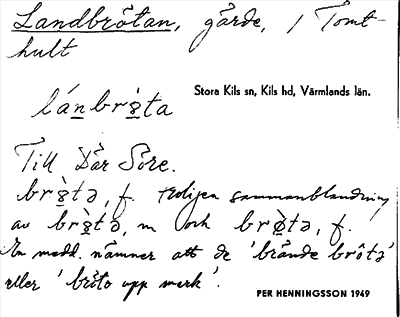 Landbrötan, gärde, i Tomt-
hult
Stora Kils sn, Kils hd, Värmlands län.
lánbrö̀ta
Till Där Söre.
brö̀tə, f. troligen sammanblandning
av brö̀tə, m och brø̀tə, f.
En medd. nämner att de 'brände bròtə'
eller 'bröto upp mark'.
PER HENNINGSSON 1949